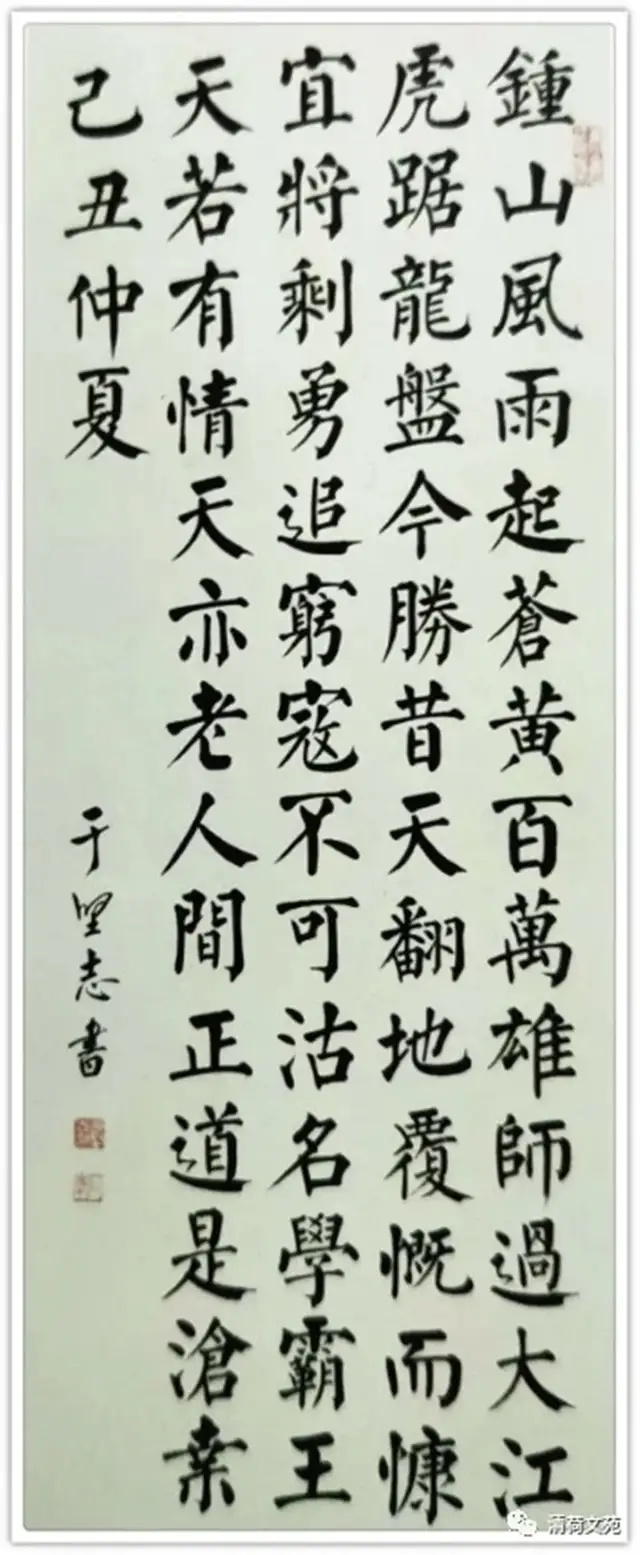 鍾山風雨起蒼黃百萬雄師過大江
虎踞龍盤今勝昔天翻地覆慨而慷
宜將剩勇追窮寇不可沽名學霸王
天若有情天亦老人間正道是滄桑
己丑仲夏
于堅志書
清荷文苑